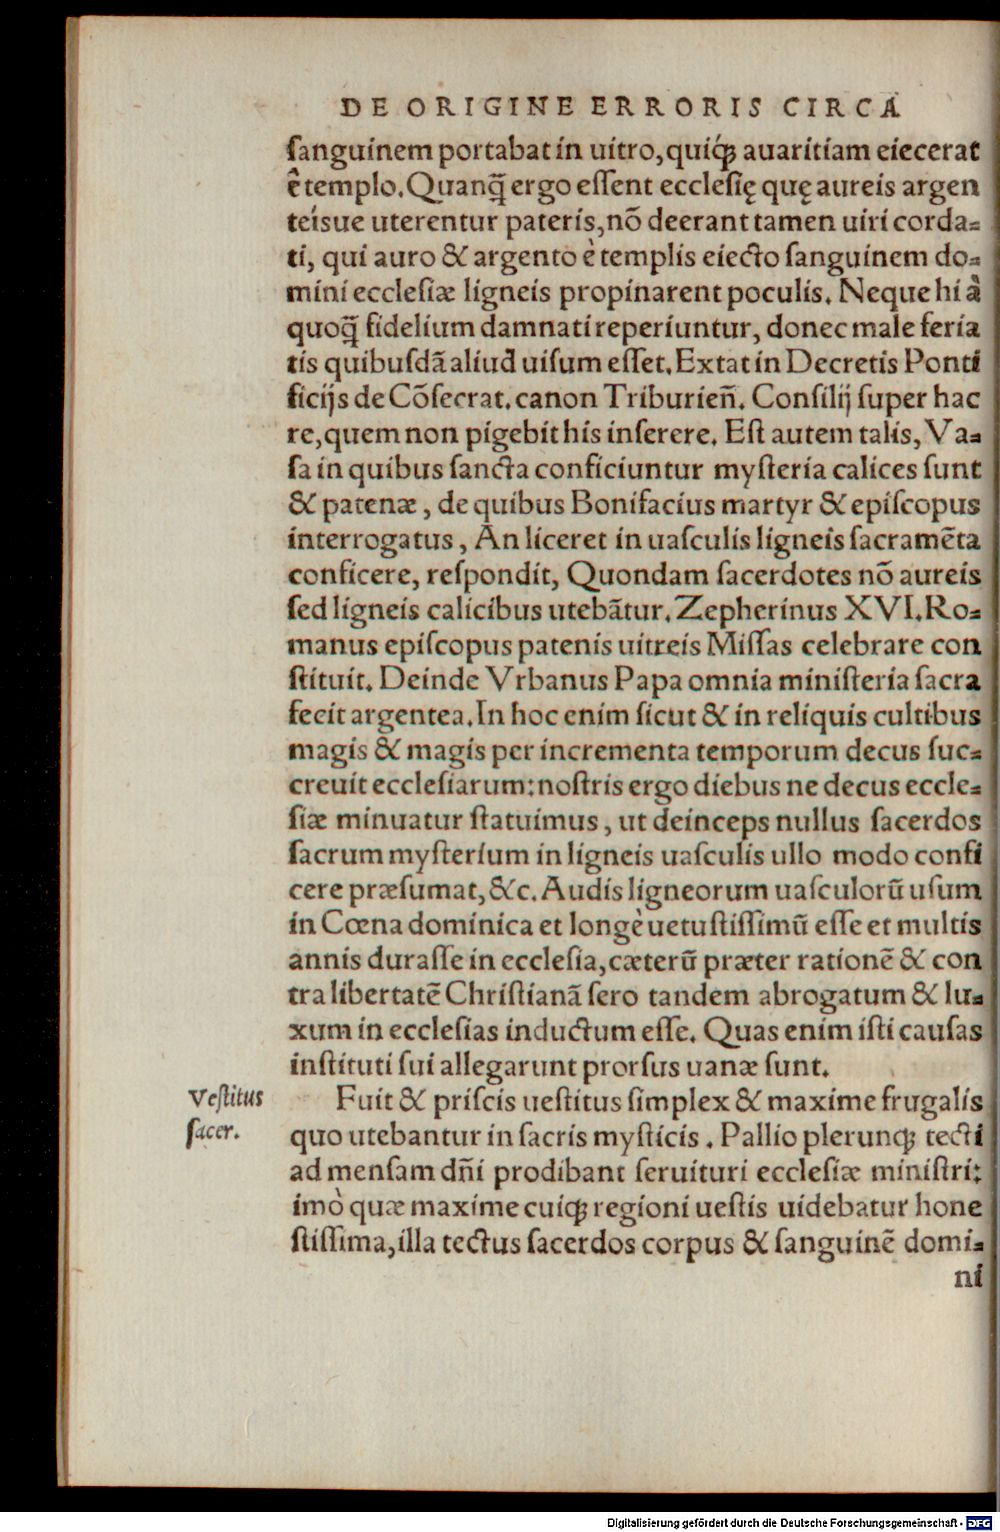 DE ORIGINE ERRORIS CIRCA
ſanguinem portabat in uitro, quiqꝫ́ auaritiam eiecerat
è templo. Quanq̃ ergo eſſent eccleſię quę aureis argen
teísue uterentur pateris, nõ deerant tamen uiri corda=
ti, qui auro & argento è templis eiecto ſanguinem do=
mini eccleſiæ ligneis propinarent poculis. Neque hi à
quoq̃ fidelium damnati reperiuntur, donec male feria
tis quibuſdã aliud uiſum eſſet. Extat in Decretis Ponti
ficijs de Cõſecrat. canon Triburien̄. Conſilij ſuper hac
re, quem non pigebit his inſerere. Eſt autem talis, Va=
ſa in quibus ſancta conficiuntur myſteria calices ſunt
& patenæ, de quibus Bonifacius martyr & epiſcopus
interrogatus, An liceret in uaſculis ligneis ſacramẽta
conficere, reſpondit, Quondam ſacerdotes nõ aureis
ſed ligneis calicibus utebãtur. Zepherinus XVI. Ro=
manus epiſcopus patenis uitreis Miſſas celebrare con
ſtituit. Deinde Vrbanus Papa omnia miniſteria ſacra
fecit argentea. In hoc enim ſicut & in reliquis cultibus
magis & magis per incrementa temporum decus ſuc=
creuit eccleſiarum: noſtris ergo diebus ne decus eccle=
ſiæ minuatur ſtatuimus, ut deinceps nullus ſacerdos
ſacrum myſterium in ligneis uaſculis ullo modo confi
cere præſumat, &c. Audis ligneorum uaſculorũ uſum
in Cœna dominica et longè uetuſtiſſimũ eſſe et multis
annis duraſſe in eccleſia, cæterũ præter rationẽ & con
tra libertatẽ Chriſtianã ſero tandem abrogatum & lu=
xum in eccleſias inductum eſſe. Quas enim iſti cauſas
inſtituti ſui allegarunt prorſus uanæ ſunt.
Veſtitus
ſacer.
Fuit & priſcis ueſtitus ſimplex & maxime frugalis
quo utebantur in ſacris myſticis. Pallio plerunqꝫ tecti
ad menſam dñi prodibant ſeruituri eccleſiæ miniſtri:
imò quæ maxime cuiqꝫ regioni ueſtis uidebatur hone
ſtiſſima, illa tectus ſacerdos corpus & ſanguinẽ domi=
ni
Digitalisierung gefördert durch die Deutsche Forschungsgemeinschaft - DFG